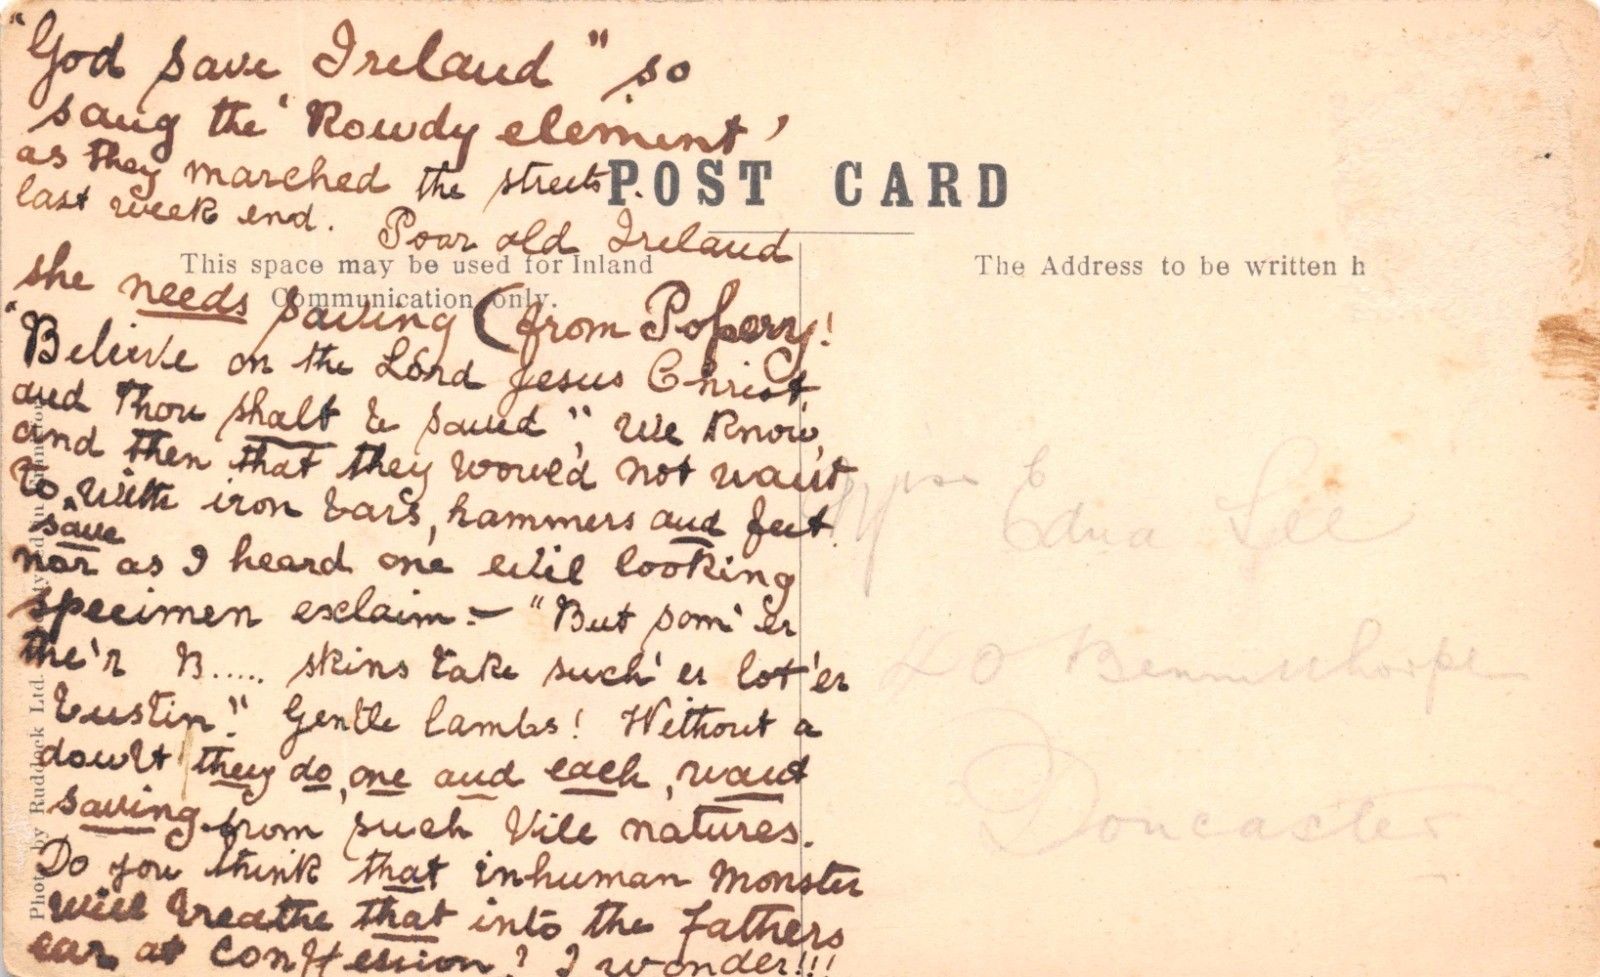 "God save Ireland" so
sang the 'Rowdy element'
as they marched the streets.
last week end. Poor old Ireland
she needs saving (from Popery!
"Believe on the Lord Jesus Christ,
and Thou shalt be saved", We know,
and then that they would not want
to save, with iron bars, hammers and feet.
nor as I heard one evil looking
specimen exclaim:— "But som' er
the'r B..... skins take such' er lot 'er
bustin"! Gentle lambs! Without a
dowbt they do, one and each, want
saving from such vile natures.
Do you think that inhuman Monster
will breathe that into the fathers
ear at Confession? I wonder!!!
POST CARD
This space may be used for Inland
Communication only.
The Address to be written h
Photo by Ruddock Ltd.
Edna Lee
Bennetthorpe
Doncaster